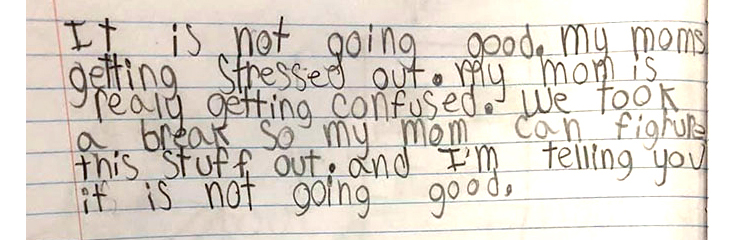 It is not going good. my moms
getting stressed out. My mom is
realy getting confused. We took
a break so my mom can fighure
this stuff out. and I'm telling you
it is not going good.